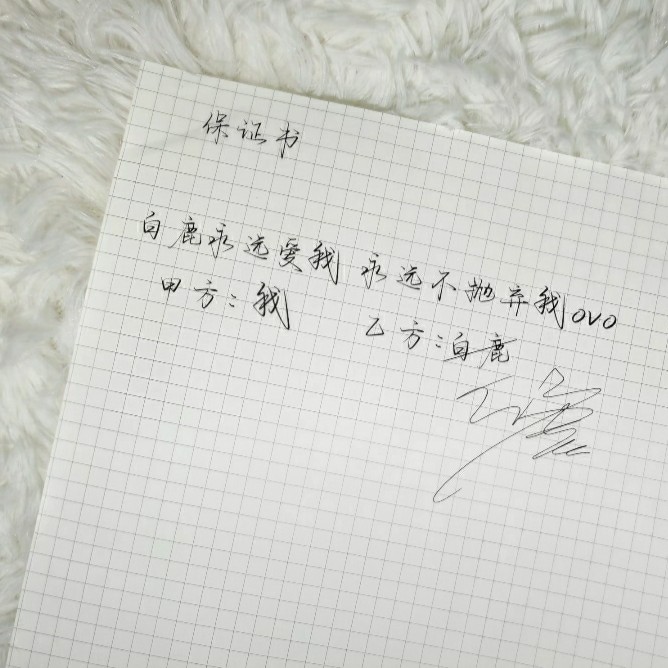 保证书
白鹿永远爱我 永远不抛弃我ovo
甲方：我 乙方：白鹿